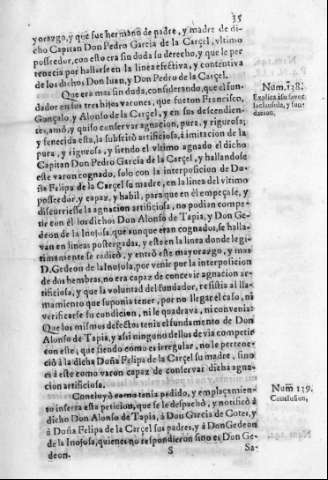 35
yorazgo, y que fue hermano de padre, y madre de di-
cho Capitan Don Pedro Garcia de la Carçel, vltimo
posseedor, con esto era sin duda su derecho, y que le per
tenecia por hallarse en la linea efectiva, y contentiva
de los dichos Don Iuan, y Don Pedro de la Carçel.
Que era mas sin duda, considerando, que el fun-
dador en sus tres hijos varones, que fueron Francisco,
Gonçalo y Alonso de la Carçel, y en sus descendien-
tes, amò, y quiso conservar agnacion, pura, y rigurosa;
y fenecida esta, la substituyò artificiosa, à imitacion de la
pura, y rigurosa, y siendo el vltimo agnado el dicho
Capitan Don Pedro Garcia de la Carçel, y hallandose
este varon cognado, solo con la interposicion de Do-
ña Felipa de la Carçel su madre, en la linea del vltimo
posseedor, y capaz, y habil, para que en èl empeçase, y
discurriesse la agnacion artificiosa, no podian compe-
tir con èl los dichos Don Alonso de Tapia, y Don Ge-
deon de la Inojosa, que aunque eran cognados, se halla-
van en lineas postergadas, y esta en la linea donde legi-
timamente se radicò, y entrò este mayorazgo, y mas
D. Gedeon de la Inojosa, por venir por la interposicion
de dos hembras, no era capaz de concevir agnacion ar-
tificiosa, y que la voluntad del fundador, resistia al lla-
mamiento que suponia tener, por no llegar el caso, ni
verificarse su condicion, ni le quadrava, ni conveniat
Que los mismos defectos tenia el fundamento de Don
Alonso de Tapia, y assi ninguno dellos devia competir
con este, que siendo como es irregular, no le pertene-
ciò à la dicha Doña Felipa de la Carçel su madre, sino
es à este como varon capaz de conservar dicha agna-
cion artificiosa.
Concluyò como tenia pedido, y emplaçamien-
to inserta esta peticion, que se le despachò, y notificò à
dicho Don Alonso de Tapia, à Don Garcia de Cotes, y
à Doña Felipa de la Carçel sus padres, y à Don Gedeon
de la Inojosa, quienes no respondieron sino es Don Ge-
deon.
S
Sa-
Num 118.
Explica
la clausula, y fun-
dacion.
Num 119.
Conclusion,